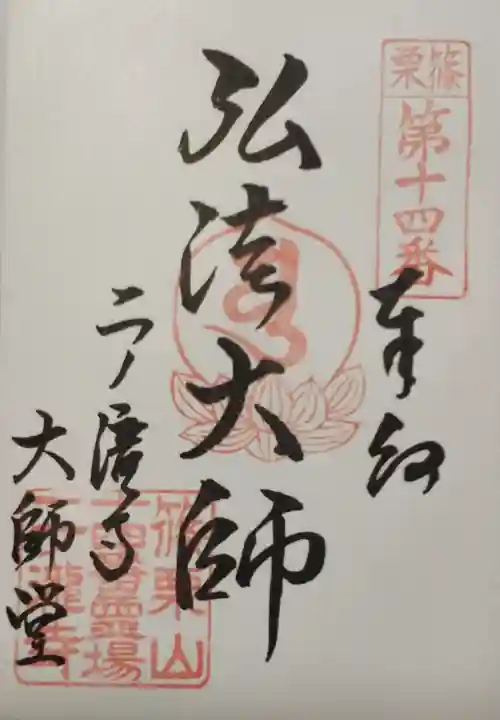 篠栗
第十四番
奉納
弘法大師
二ノ滝寺
大師堂
篠栗山
十四番霊場
二瀧寺